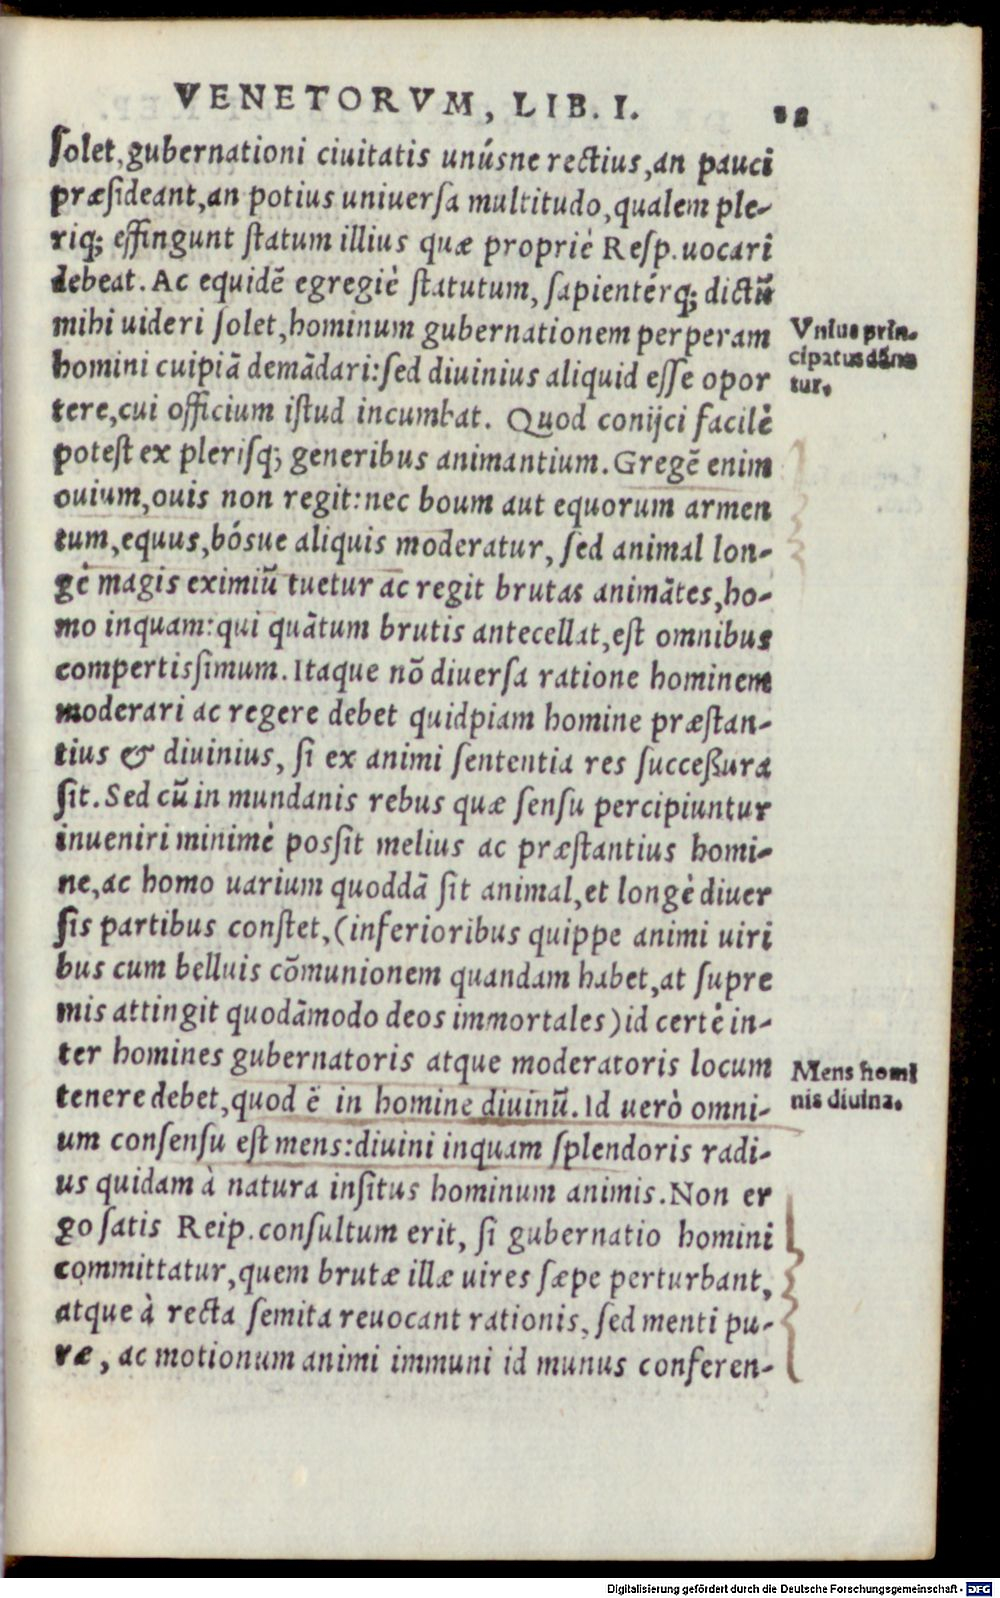 VENETORVM, LIB. I.
solet, gubernationi ciuitatis unúsne rectius, an pauci
præsideant, an potius uniuersa multitudo, qualem ple-
riq; effingunt statum illius quæ propriè Resp. uocari
debeat. Ac equidē egregiè statutum, sapientérq; dictū
mihi uideri solet, hominum gubernationem perperam
Vnius prin-
cipatus dāna
tur.
homini cuipiā demādari: sed diuinius aliquid esse opor
tere, cui officium istud incumbat. Quod conijci facilè
potest ex plerisq; generibus animantium. Gregē enim
ouium, ouis non regit: nec boum aut equorum armen
tum, equus, bósue aliquis moderatur, sed animal lon-
gè magis eximiū tuetur ac regit brutas animātes, ho-
mo inquam: qui quātum brutis antecellat, est omnibus
compertissimum. Itaque nō diuersa ratione hominem
moderari ac regere debet quidpiam homine præstan-
tius & diuinius, si ex animi sententia res successura
sit. Sed cū in mundanis rebus quæ sensu percipiuntur
inueniri minimè possit melius ac præstantius homi-
ne, ac homo uarium quoddā sit animal, et longè diuer
sis partibus constet, (inferioribus quippe animi uiri
bus cum belluis cōmunionem quandam habet, at supre
mis attingit quodāmodo deos immortales) id certè in-
ter homines gubernatoris atque moderatoris locum
Mens homi
nis diuina.
tenere debet, quod ē in homine diuinū. Id uerò omni-
um consensu est mens: diuini inquam splendoris radi-
us quidam à natura insitus hominum animis. Non er
go satis Reip. consultum erit, si gubernatio homini
committatur, quem brutæ illæ uires sæpe perturbant,
atque à recta semita reuocant rationis, sed menti pu-
ræ, ac motionum animi immuni id munus conferen-
Digitalisierung gefördert durch die Deutsche Forschungsgemeinschaft - DFG